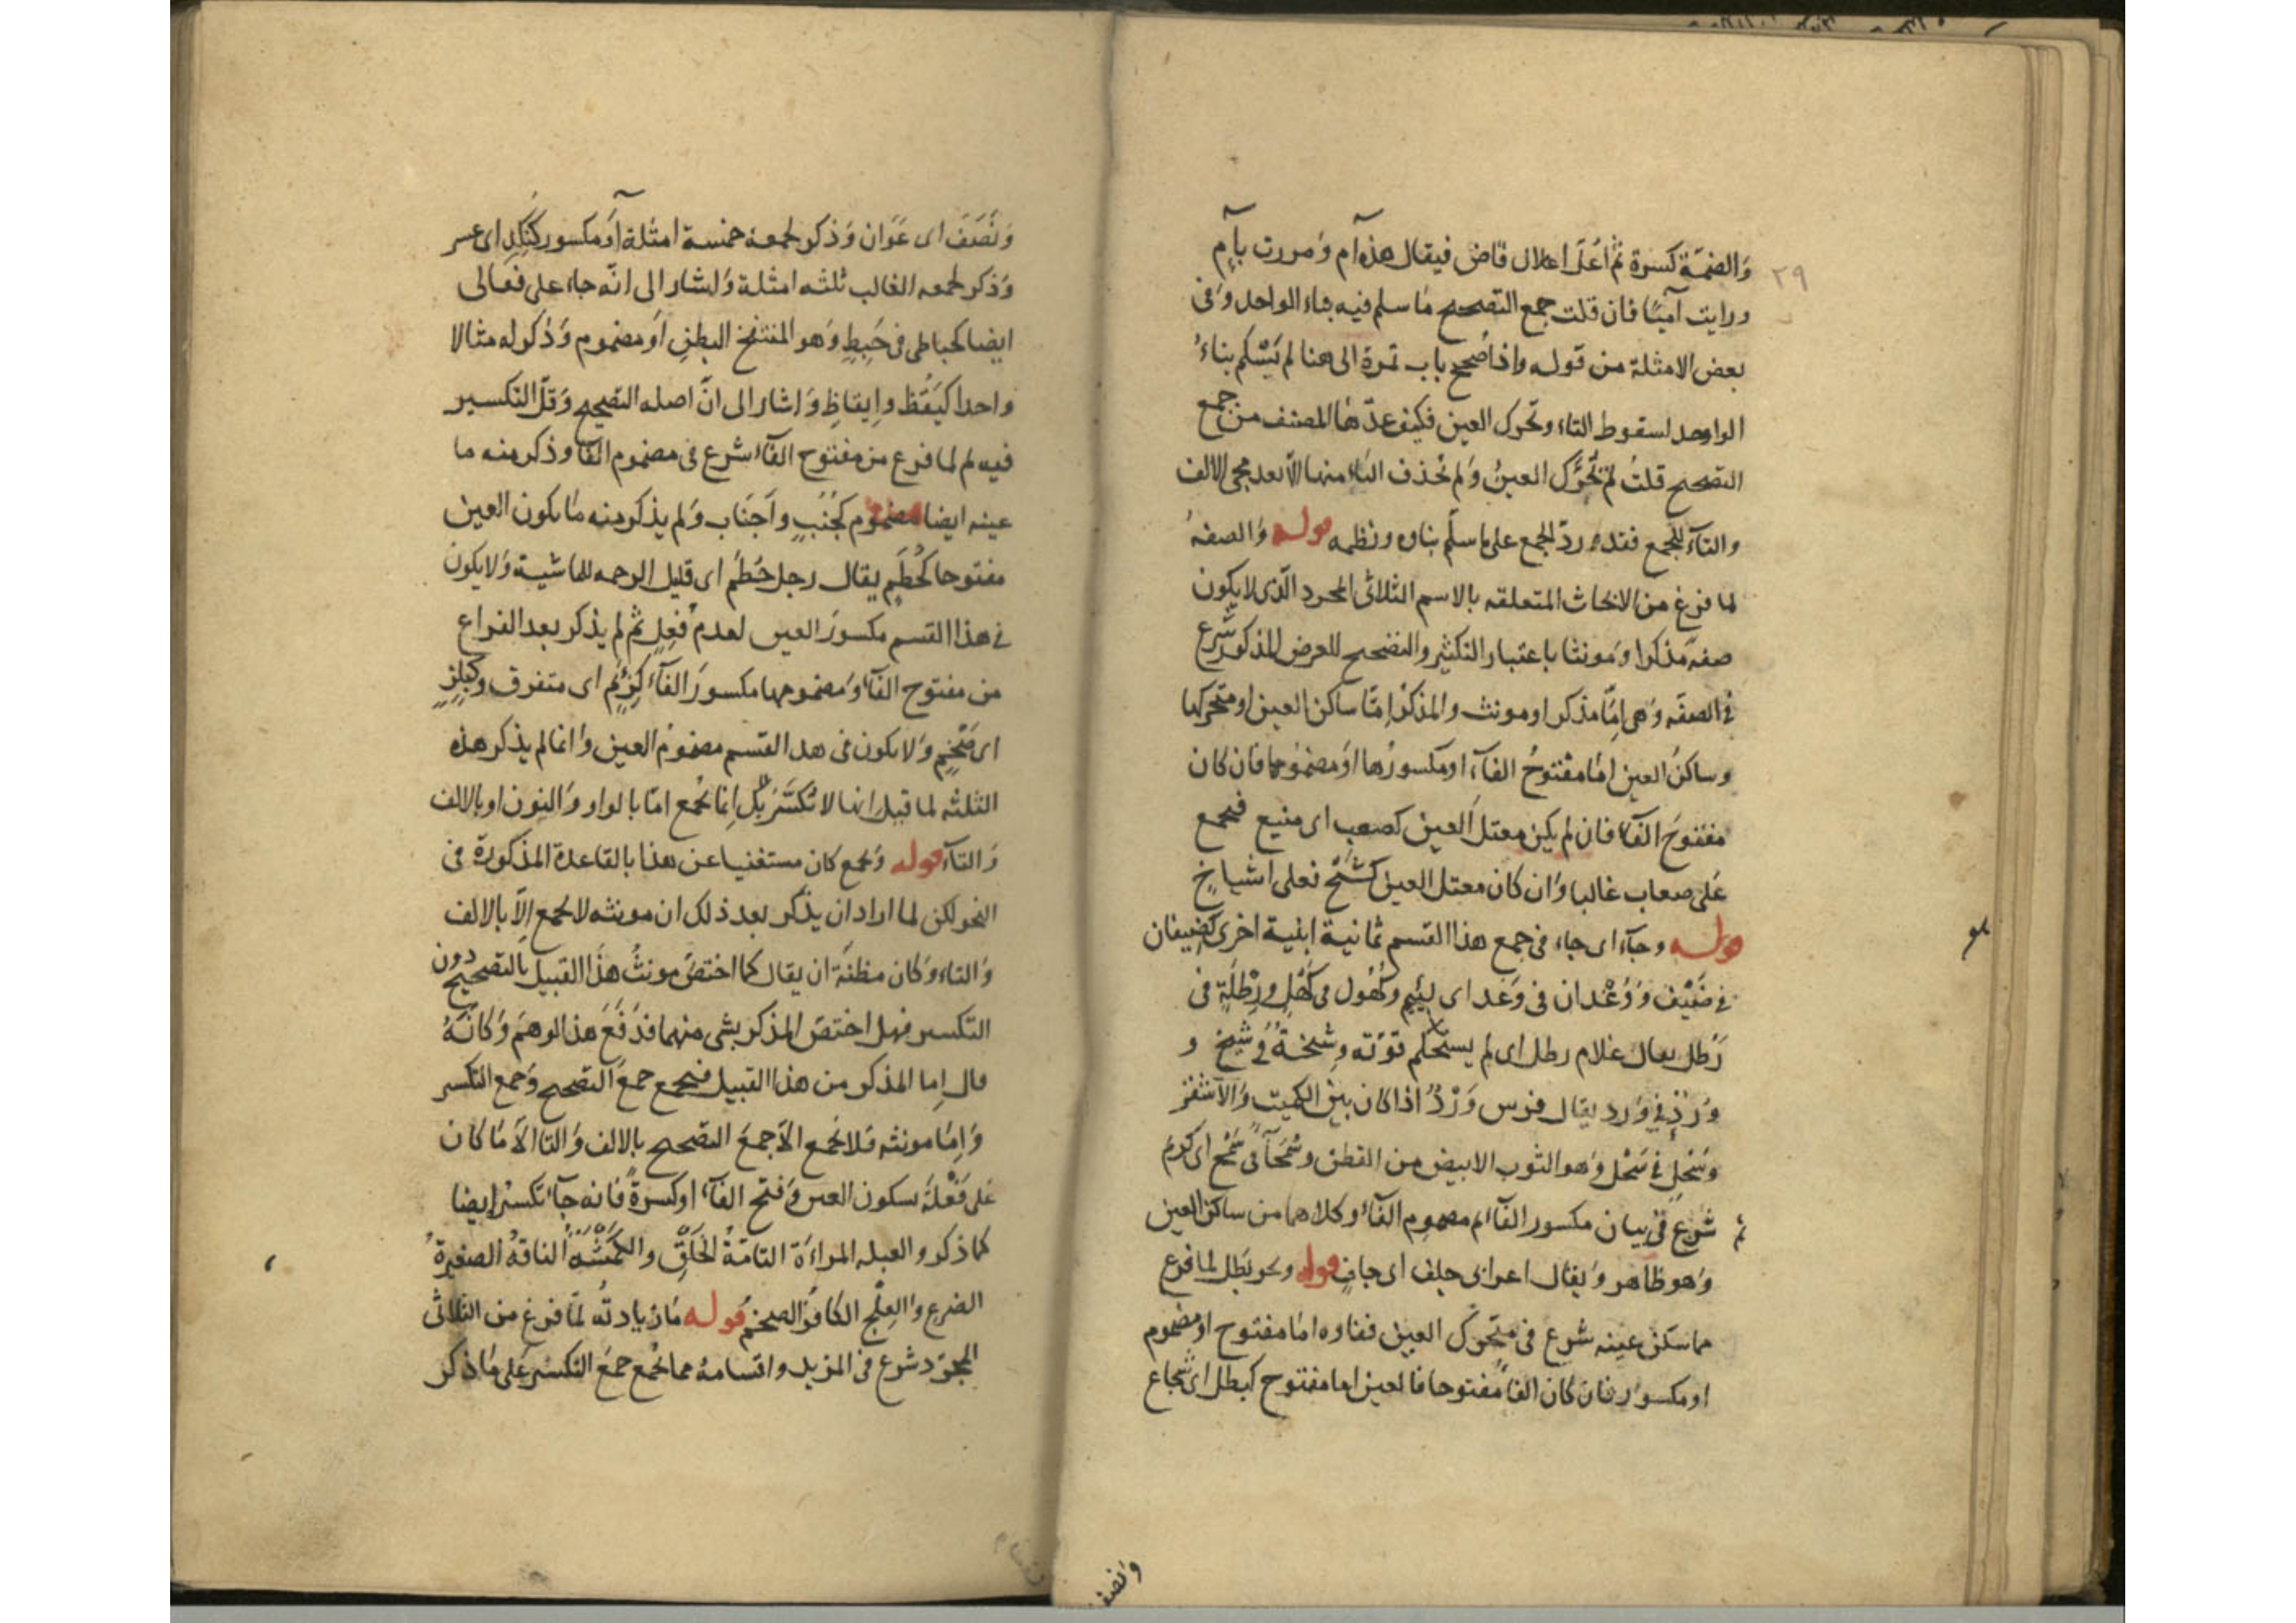 ٢٩
والضمّة كسرة ثم أُعلّ اعلال قاض فيقال هذه آم ومررت بآمٍ
ورايت آميًا فان قلت جمع التصحيح ما سلم فيه بناء الواحد وفى
بعض الامثلة من قوله واذا صُحح باب تمرة الى هنا لم يَسْلم بناءُ
الواحد لسقوط التاء وتحرك العين فكيف عدّها المصنف من جمع
التصحيح قلتُ لم تحرَّك العينُ ولم تحذف التاء منها الا بعد مجى الالف
والتآء للجمع فقد ورد الجمع على ما سلّم بناوه ونظمه قوله والصفة
لما فرغ من الابحاث المتعلقه بالاسم الثلاثى المجرد الّذى لا يكون
صفة مذكرا ومونثا باعتبار التكثير والتصحيح للعرض المذكور شرع
فى الصفه وهى امّا مذكر او مونث والمذكر امّا ساكن العين او متحركها
وساكنُ العين امّا مفتوحُ الفآء او مكسورُها او مضمومها فان كان
مفتوحَ الفآء فان لم يكن معتل العين كصعب اى منيع فيجمع
على صعاب غالبا وان كان معتل العين كشَيْخ فعلى اشياخٍ
قوله وجآء اى جاء فى جمع هذا القسم ثمانية ابنية اخرى كضيفان
فى ضَيْف ووُغْدان فى وَغد اى لئيم وكُهُول فى كَهْل ورِطَلَةٍ فى
رَطل يقال غلام رطل اى لم يستحكم قوّته وشِيخة فى شيخ و
وُرْدٍ فى وَرد يقال فرس وَرْدٌ اذا كان بين الكميت والاشقر
وسُحُلٍ فى سَحْل وهو الثوب الابيض من القطن وسُمَحآء فى سَمْح اى كرم
ثم شرع فى بيان مكسور الفآء ثم مضموم الفآء وكلاهما من ساكن العين
وهو ظاهر ويقال اعرابى جلف اى جافٍ قوله ونحو بَطَل لما فرغ
مما سكن عينه شرع فى متحرك العين ففاوه امّا مفتوح او مضموم
او مكسور فان كان الفاء مفتوحا فالعين اما مفتوح كبطل اى شجاع
ونصف
ونَصَف اى عَوَان وذكر لجمعه خمسة امثلة او مكسور كنَكِدٍ اى عسر
وذكر لجمعه الغالب ثلثه امثلة واشار الى انّه جاء على فَعَالى
ايضا كحباطى فى حَبِطٍ وهو المنتفخ البطنِ او مضموم وذكر له مثالا
واحدا كيَقُظ وايقاظٍ واشار الى انّ اصله التصحيح وقلّ التكسير
فيه ثم لما فرغ من مفتوح الفآء شرع فى مضموم الفآء وذكر منه ما
عينه ايضا مضموم كجُنُبٍ واَجنَاب ولم يذكر منه ما يكون العين
مفتوحا كحُطَمٍ يقال رجل حُطَم اى قليل الرحمه للماشية ولا يكون
فى هذا القسم مكسورَ العين لعدم فُعِلٍ ثم لم يذكر بعد الفراغ
من مفتوح الفآء ومضمومها مكسورَ الفآء كزِئَمٍ اى متفرق وكبِلِزٍ
اى ضَخْمٍ ولا يكون فى هذا القسم مضمومُ العين وانما لم يذكر هذه
الثلثه لما قيل انها لا تُكسَّرُ بل انما تُجمع امّا بالواو والنون او بالالف
والتآء قوله ويجمع كان مستغنيا عن هذا بالقاعدة المذكورة فى
النحو لكن لما اراد ان يذكر بعد ذلك ان مونثه لا يجمع الاّ بالالف
والتاء وكان مظنّة ان يقال كما اختصّ مونثُ هذا القبيل بالتصحيح دون
التكسير فهل اختصّ المذكر بشى منهما فدَفَعَ هذا الوهمَ وكانّه
قال اما المذكر من هذا القبيل فيجمع جمعَ التصحيح وجمع التكسير
وامّا مونثه فلا تجمع الاّ جمعَ التصحيح بالالف والتا الاّ ما كان
على فَعْلة بسكون العين وفتح الفآء او كسرةً فانه جآء تكسيرُ ايضا
كما ذكر والعبله المراءة التامّةُ الخَلْقِ والكَمْشَة الناقةُ الصغيرةُ
الضرع والعِلْج الكافرُ الضخمُ قوله ما زيادته لمّا فرغ من الثلاثى
المجرّد شرع فى المزيد واقسامه مما يُجمع جمعَ التكسير على ما ذكر